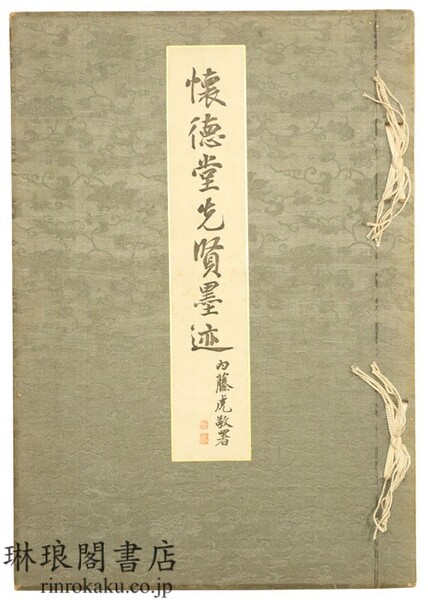 懐德堂先賢墨迹
内藤虎敬署
琳琅閣書店
rinrokaku.co.jp